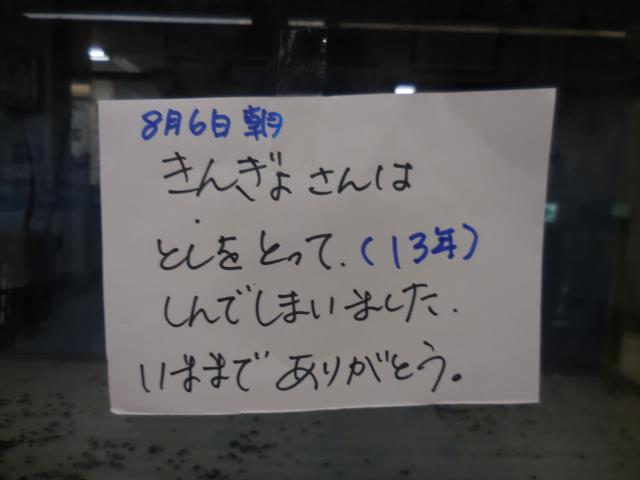 8月6日 朝
きんぎょさんは
としをとって.(13年)
しんでしまいました.
いままでありがとう。